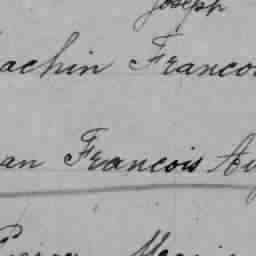 Joseph
achin Franco
an Francois Au